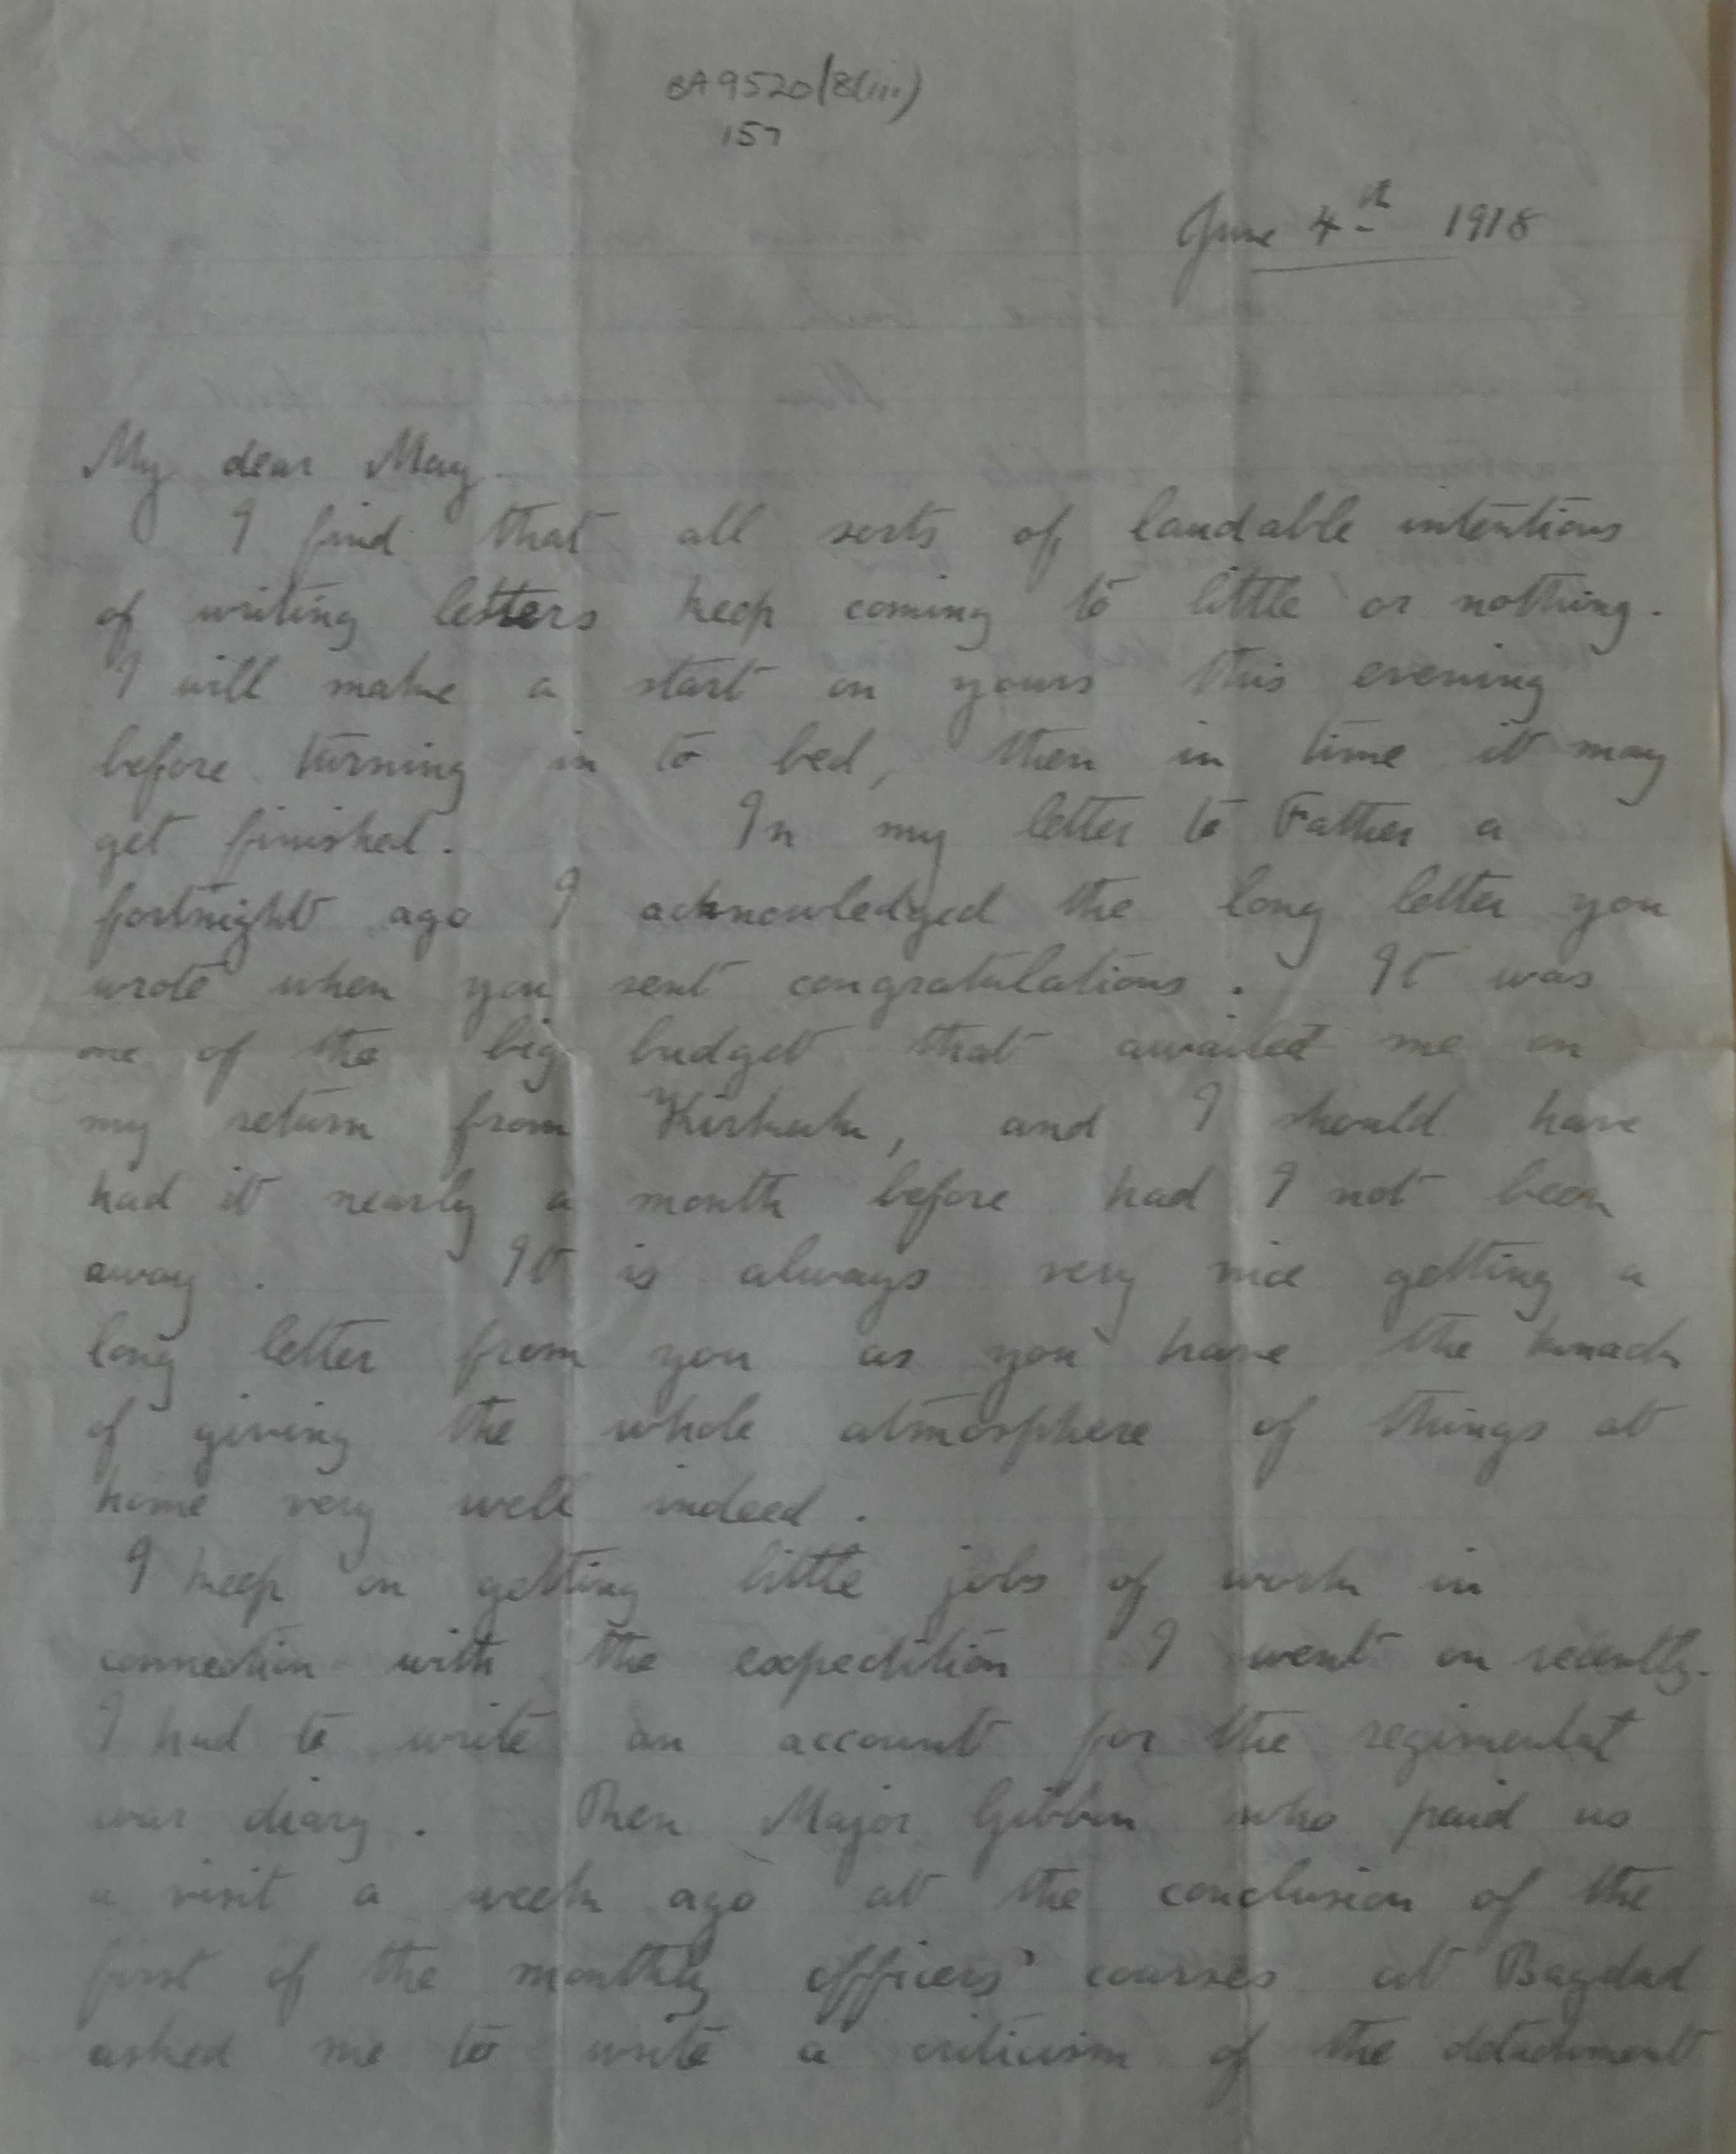 BA9520/8(iii)
157
June 4th 1918
My dear May.
I find that all sorts of laudable intentions
of writing letters keep coming to little or nothing.
I will make a start on yours this evening
before turning in to bed, then in time it may
get finished. In my letter to Father a
fortnight ago I acknowledged the long letter you
wrote when you sent congratulations. It was
one of the big budget that awaited me on
my return from Kirkuk, and I should have
had it nearly a month before had I not been
away. It is always very nice getting a
long letter from you as you have the knack
of giving the whole atmosphere of things at
home very well indeed.
I keep on getting little jobs of work in
connection with the expedition I went on recently.
I had to write an account for the regimental
war diary. Then Major who paid us
a visit a week ago at the conclusion of the
first of the monthly officers' courses at Bagdad
asked me to write a criticism of the detachment